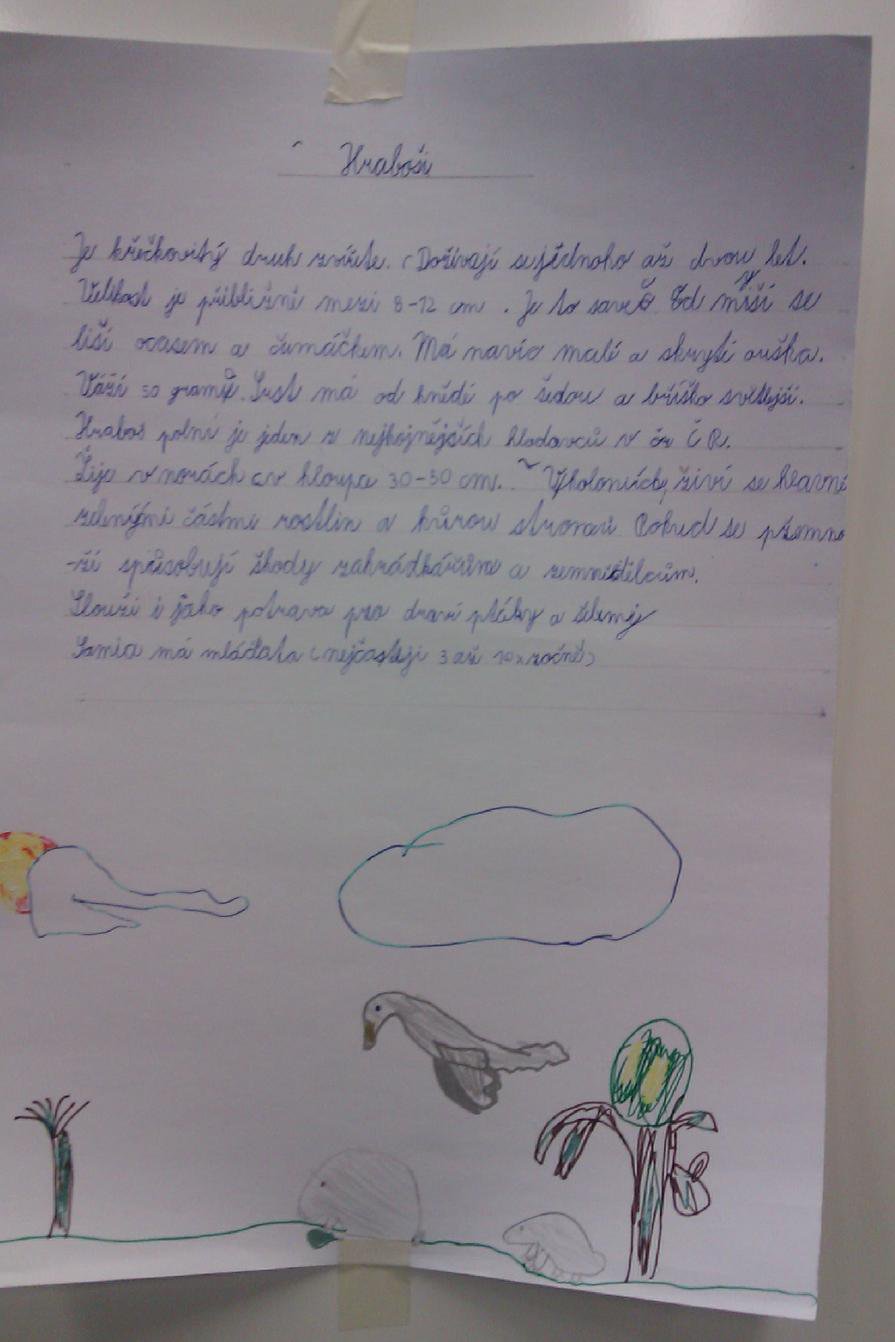 Hraboši
Je křečkovitý druh zvířete. Dožívají se jednoho až dvou let.
Velikost je přibližně mezi 8-12 cm. Je to savec Od myší se
liší ocasem a čumáčkem. Má navíc malé a skryté ouška.
Váží 50 gramů. Srst má od hnědé po šedou a bříško světlejší.
Hraboš polní je jeden z nejhojnějších hlodavců v ČR.
Žije v norách v hloupce 30-50 cm. živí se hlavně
zelenými částme rostlin a kůrou stromů Pokud se přemno
-ží způsobují škody zahrádkářům a zemnědělcům.
Slouží i jako potrava pro draví ptáky a šelmy
Samice má mláďata (nejčastěji 3 až 10x ročně)